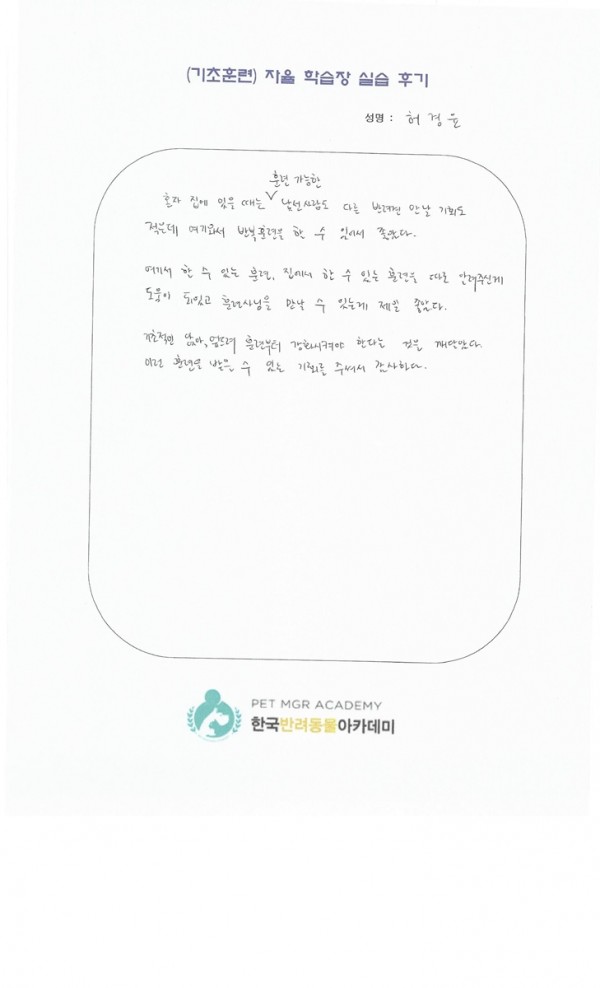 (기초훈련) 자율 학습장 실습 후기
성명 : 허경윤
훈련 가능한
혼자 집에 있을 때는 ∨ 낯선사람도 다른 반려견 만날 기회도
적은데 여기와서 반복훈련을 한 수 있어서 좋았다.
여기서 한 수 있는 훈련, 집에서 한 수 있는 훈련을 따로 알려주신게
도움이 되었고 훈련사님을 만날 수 있는게 제일 좋았다.
기초적인 앉아, 엎드려 훈련부터 강화시켜야 한다는 것을 깨달았다.
이런 훈련을 받을 수 있는 기회를 주셔서 감사하다.
PET MGR ACADEMY
한국반려동물아카데미